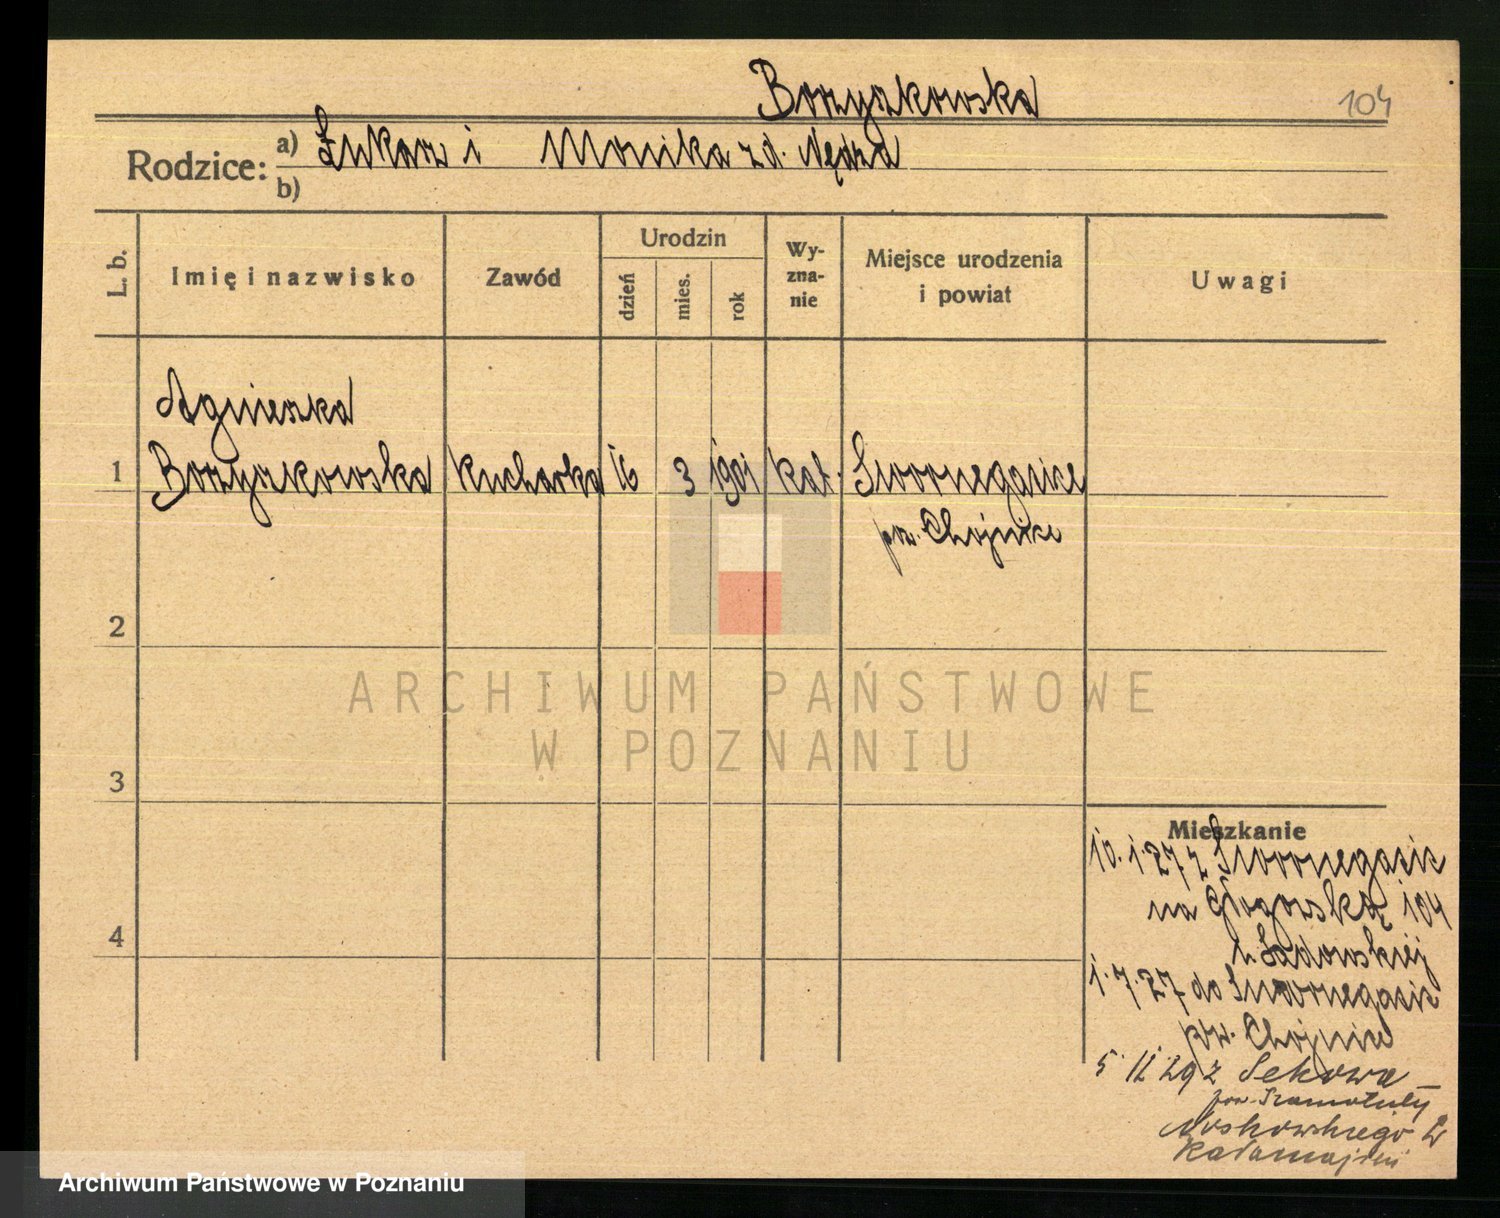 Borzyszkowska
104
Rodzice: a) Łukasz i Monika zd. Nędza
b)
L. b.
Imię i nazwisko
Zawód
Urodzin
dzień
mies.
rok
Wy-
zna-
nie
Miejsce urodzenia
i powiat
Uwagi
Agnieszka
1 Borzyszkowska Kucharka 16 3 1901 kat. Swornegacice
pow. Chojnice
2
ARCHIWUM PAŃSTWOWE
W POZNANIU
3
Mieszkanie
10.1.27 z Swornegacic
na Głogowską 104
Sadowskiej
4
1.7.27 do Swornegacic
pow. Chojnice
5 II 29 z Sekowa
pow. Szamotuły
Noskowskiego 2
Archiwum Państwowe w Poznaniu